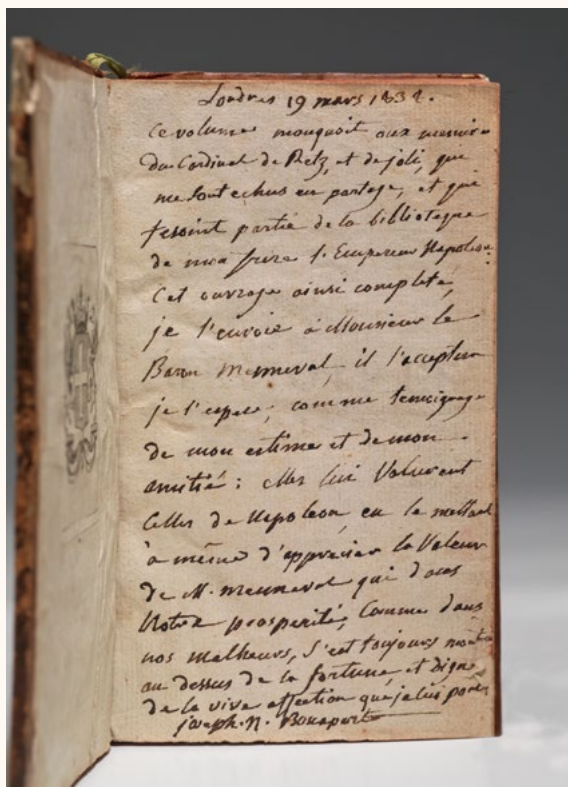 Londres 19 mars 1834.
Ce volume manquoit aux memoires
du Cardinal de Retz, et de joli, qui
me sont echus en partage, et qui
fesoint partie de la biblioteque
de mon frere l'Empereur Napoleon:
Cet ouvrage ainsi completé,
je l'envoie à Monsieur le
Baron Menneval, il l'acceptera
je l'espere, comme temoignage
de mon estime et de mon
amitié: elles lui valurent
celles de Napoleon, en le mettant
à même d'apprecier la Valeur
de M. Menneval qui dans
Notre prosperité, Comme dans
nos malheurs, s'est toujours montré
au dessus de la fortune, et digne
de la vive affection que je lui porte
joseph. N. Bonaparte